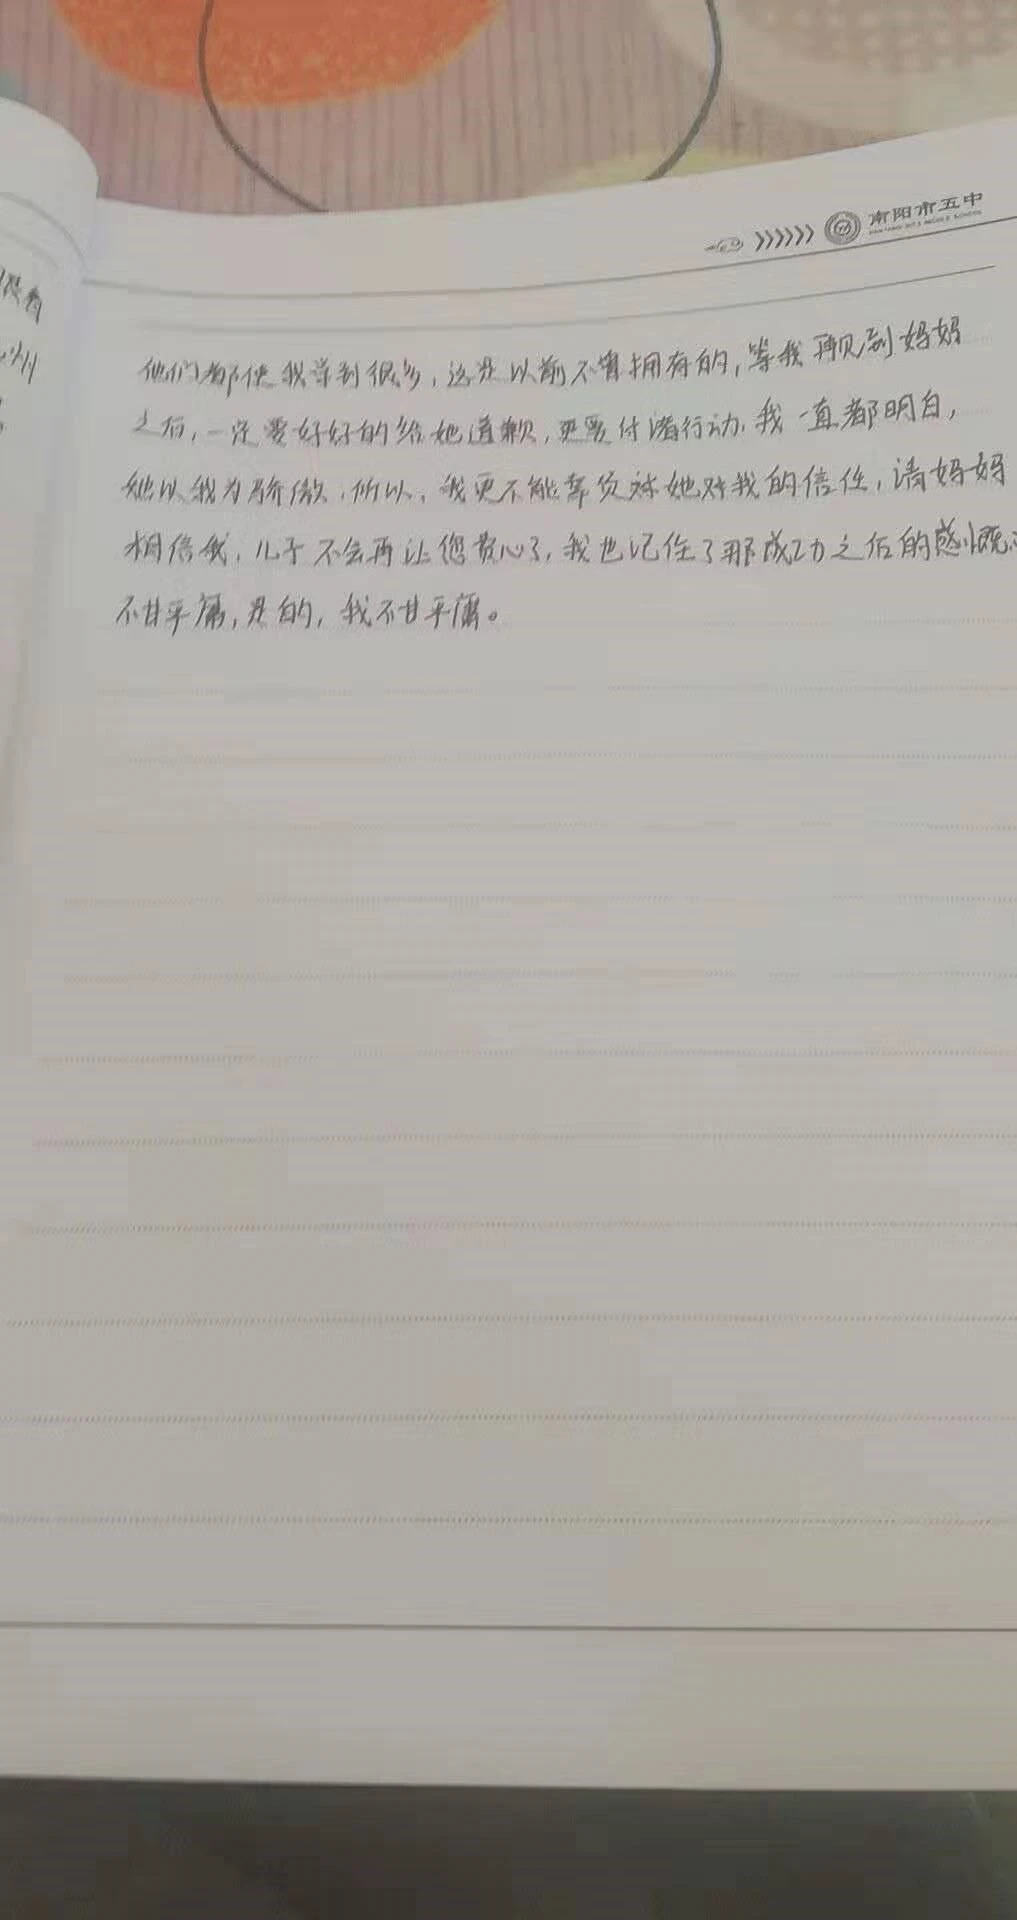 南阳市五中
他们都使我学到很多，这是以前不曾拥有的，等我再见到妈妈
之后，一定要好好的给她道歉，更要付诸行动，我一直都明白，
她以我为骄傲，所以，我更不能辜负对她对我的信任，请妈妈
相信我，儿子不会再让您费心了，我也记住了那成功之后的感慨
不甘平庸，是的，我不甘平庸。